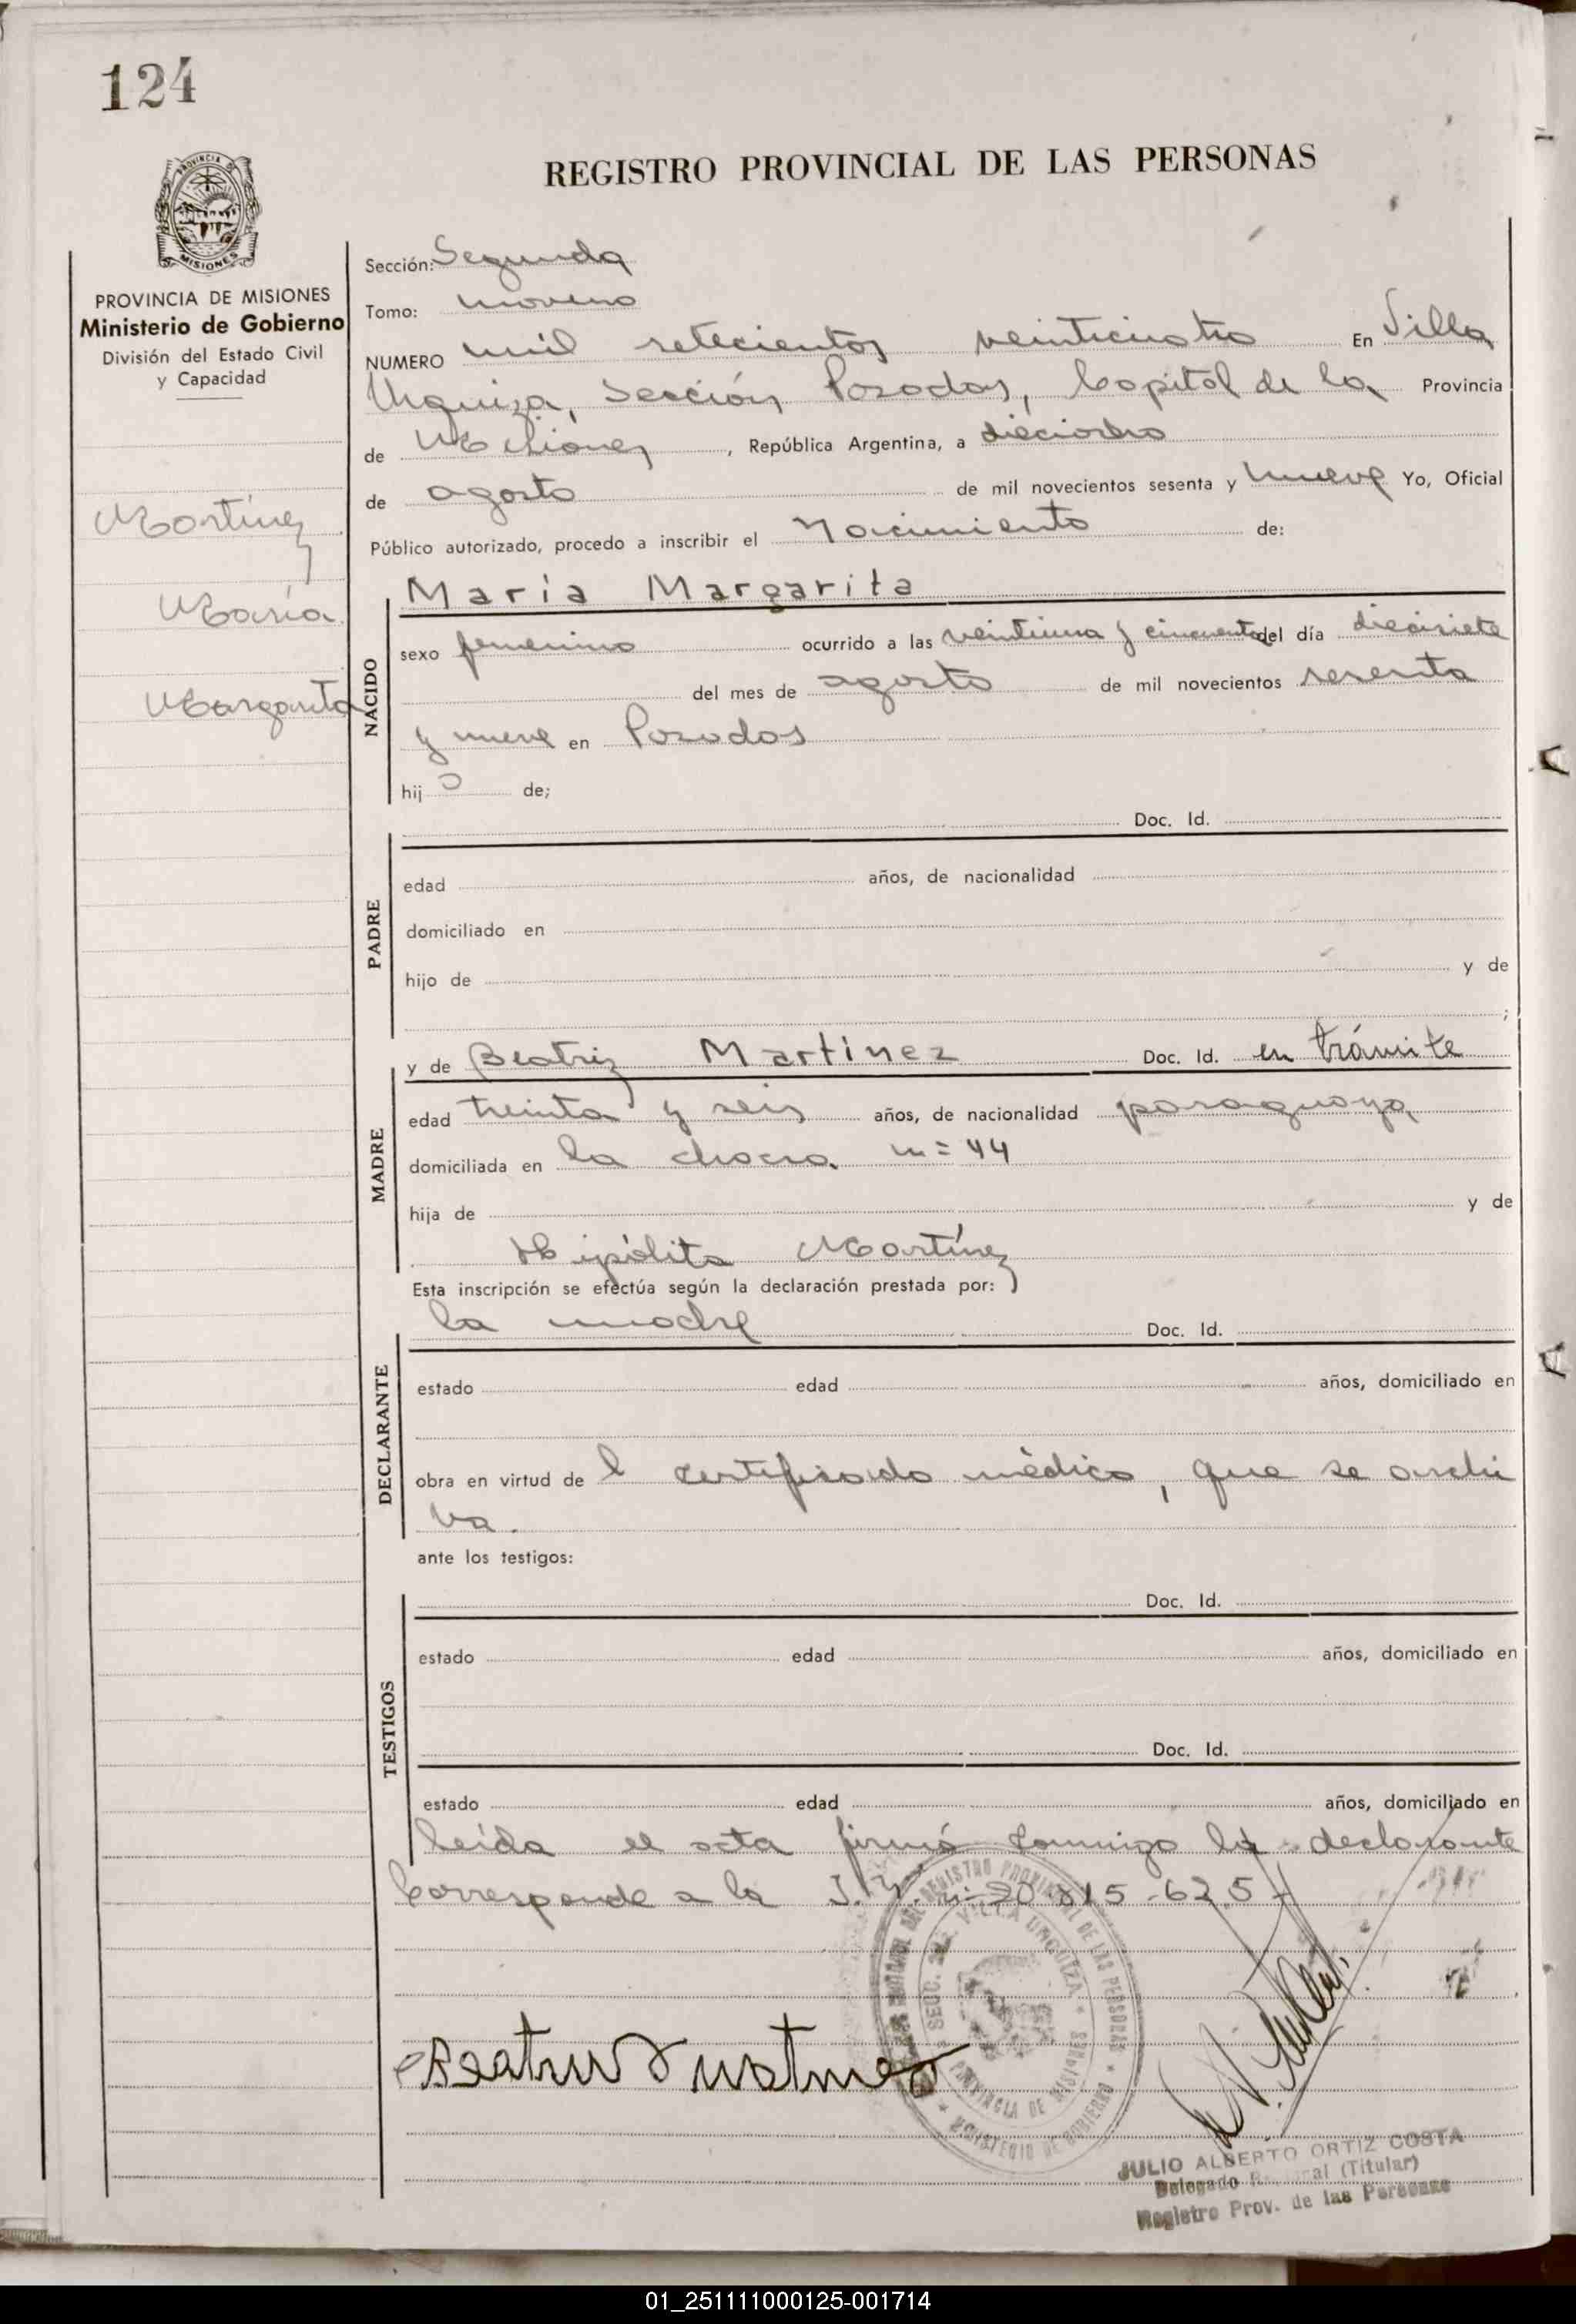 124
REGISTRO PROVINCIAL DE LAS PERSONAS
PROVINCIA DE MISIONES
Ministerio de Gobierno
División del Estado Civil
y Capacidad
Martínez
María
Margarita
Sección: Segunda
Tomo: noveno
NUMERO mil setecientos veinticuatro En Villa
Urquiza, Sección Posadas, Capital de la Provincia
de Misiones, República Argentina, a dieciocho
de agosto de mil novecientos sesenta y nueve Yo, Oficial
Público autorizado, procedo a inscribir el Nacimiento de:
NACIDO
María Margarita
sexo femenino ocurrido a las veintiuna y cincuenta del día diecisiete
del mes de agosto de mil novecientos sesenta
y nueve en Posadas
hij a de;
PADRE
Doc. Id.
edad años, de nacionalidad
domiciliado en
hijo de y de
;
MADRE
y de Beatriz Martinez Doc. Id. en trámite
edad treinta y seis años, de nacionalidad paraguaya
domiciliada en la chacra n= 44
hija de y de
Hipólita Martínez
Esta inscripción se efectúa según la declaración prestada por:
DECLARANTE
la madre Doc. Id.
estado edad años, domiciliado en
obra en virtud de l certificado médico, que se archi
va.
ante los testigos:
TESTIGOS
Doc. Id.
estado edad años, domiciliado en
Doc. Id.
estado edad años, domiciliado en
leída el acta firmó conmigo la declarante
Corresponde a la 20-815-625
REGISTRO PROVINCIAL DE LAS PERSONAS
SECC. VILLA URQUIZA
PROVINCIA DE MISIONES
MINISTERIO DE GOBIERNO
JULIO ALBERTO ORTIZ COSTA
Delegado (Titular)
Registro Prov. de las Personas
01_251111000125-001714